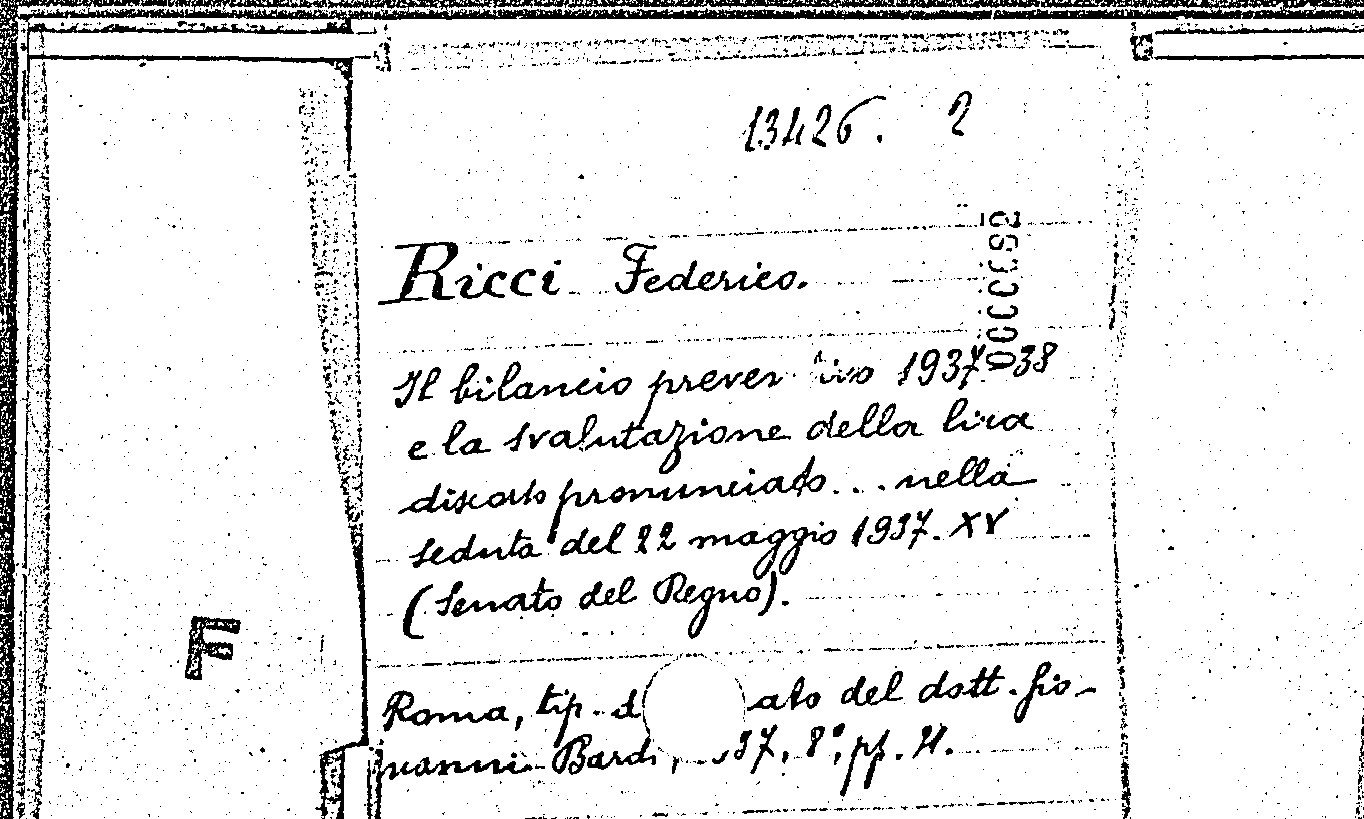 13426. 2
Ricci Federico.
Il bilancio preven ivo 1937-38
e la svalutazione della lira
discorso pronunciato... nella
seduta del 22 maggio 1937. XV
(Senato del Regno).
F
Roma, tip. d ato del dott. Gio-
vanni Bardi, 37, 8°, pp.